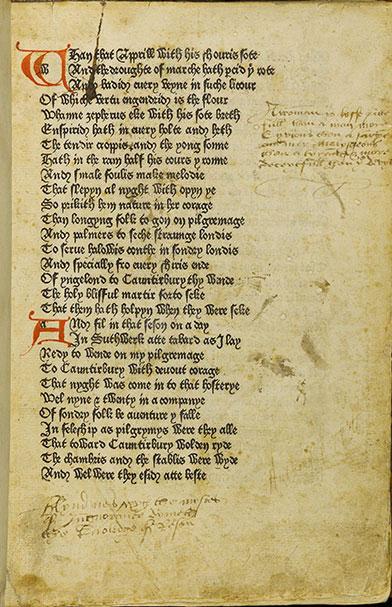 WHan that Apprill with his shouris sote
And the droughte of marche hath ꝑcid þͤ rote
And badid euery veyne in suche licour
Of whiche vertu engendrid is the flour
Whanne zepherus eke with his sote breth
Enspirid hath in euery holte and heth
The tendir croppis and the yong sonne
Hath in the ram half his cours y ronne
And smale foulis make melodie
That slepyn al nyght with opyn ye
So prikith hem nature in her corage
Than longyng folk to gon on pilgremage
And palmers to seche straunge londis
To serue halowis couthe in sondry londis
And specially fro euery shiris ende
Of yngelond to Cauntirbury thy wende
The holy blisful martir forto seke
That them hath holpyn when they were seke
ANd fil in that seson on a day
In Suthwerk atte tabard as I lay
Redy to wende on my pilgremage
To Cauntirbury with deuout corage
That nyght was come in to that hosterye
Wel nyne & twenty in a companye
Of sondry folk be auenture y falle
In feleship as pilgrymys were they alle
That toward Cauntirbury wolden ryde
The chambris and the stablis were wyde
And wel were they esid atte beste
A woman is
than a man
than a
than a